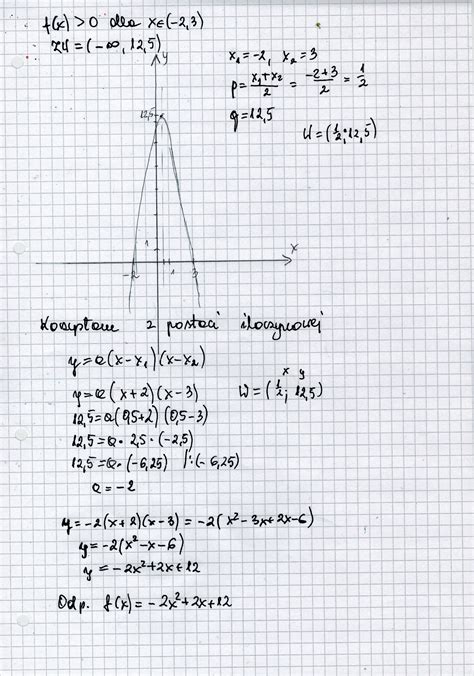 f(x) > 0 dla x∈(-2,3)
ZW = (-∞, 12,5)
x₁ = -2, x₂ = 3
p = (x₁+x₂)/2 = (-2+3)/2 = 1/2
q = 12,5
W = (1/2; 12,5)
y
12,5
1
x
-2
1
3
Korzystam z postaci iloczynowej
y = a(x-x₁)(x-x₂)
y = a(x+2)(x-3)
x y
W = (1/2; 12,5)
12,5 = a(0,5+2)(0,5-3)
12,5 = a · 2,5 · (-2,5)
12,5 = a · (-6,25) /:(-6,25)
a = -2
y = -2(x+2)(x-3) = -2(x²-3x+2x-6)
y = -2(x²-x-6)
y = -2x²+2x+12
Odp. f(x) = -2x²+2x+12